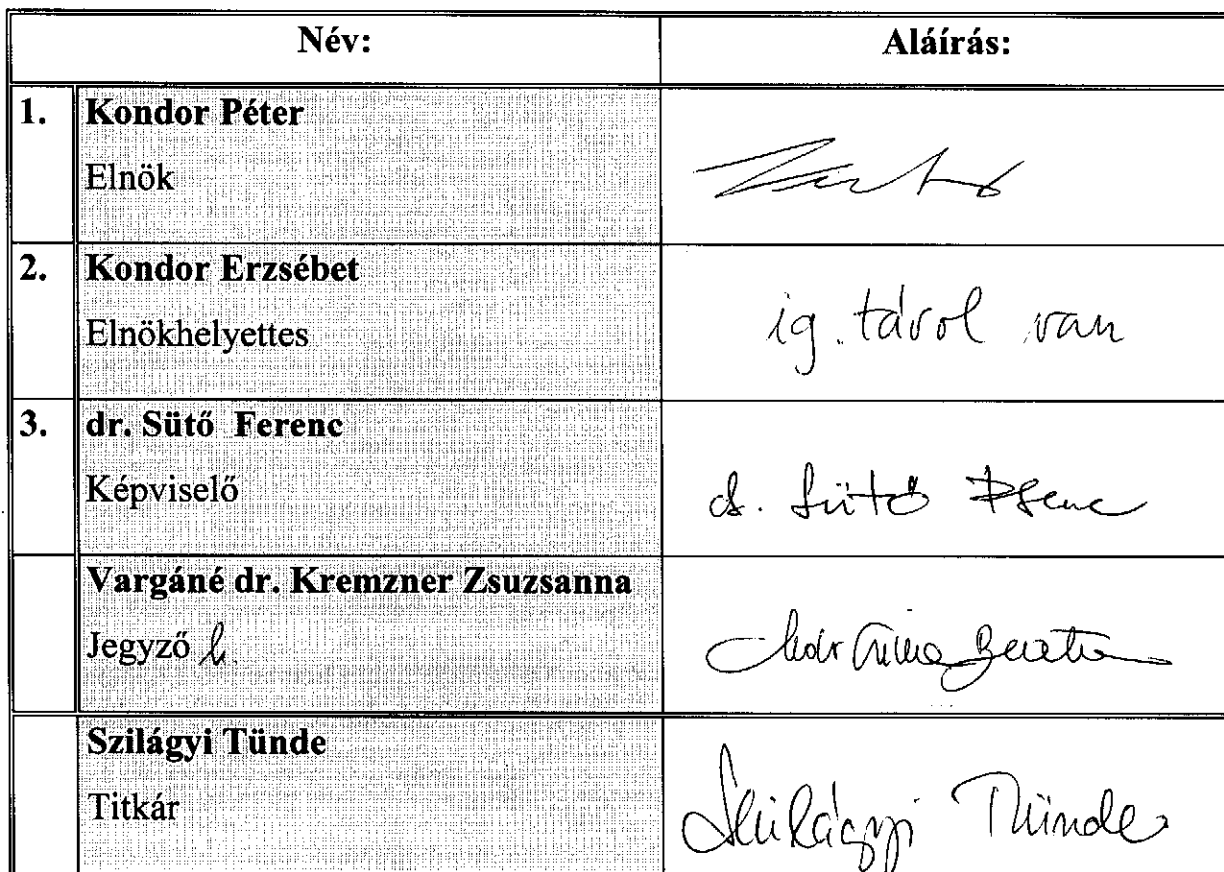 Név: Aláírás:
1. Kondor Péter
Elnök
2. Kondor Erzsébet
Elnökhelyettes
ig. távol van
3. dr. Sütő Ferenc
Képviselő
dr. Sütő Ferenc
Vargáné dr. Kremzner Zsuzsanna
Jegyző h.
Szilágyi Tünde
Titkár
Szilágyi Tünde